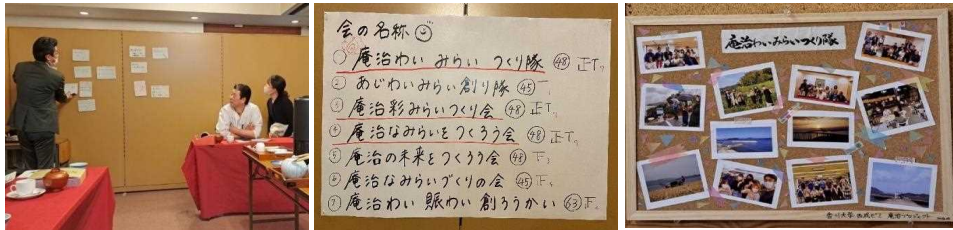 会の名称
① 庵治わい みらい つくり隊 ㊽ 正T
② あじわいみらい創り隊 ㊺
③ 庵治彩みらいつくり会 ㊽ 正T
④ 庵治なみらいをつくろう会 ㊽ 正T
⑤ 庵治の未来をつくろう会 ㊽
⑥ 庵治なみらいづくりの会 ㊺ 正
⑦ 庵治わい 賑わい 創ろうかい 63 正
庵治わいみらいつくり隊
香川大学 庵治プロジェクト